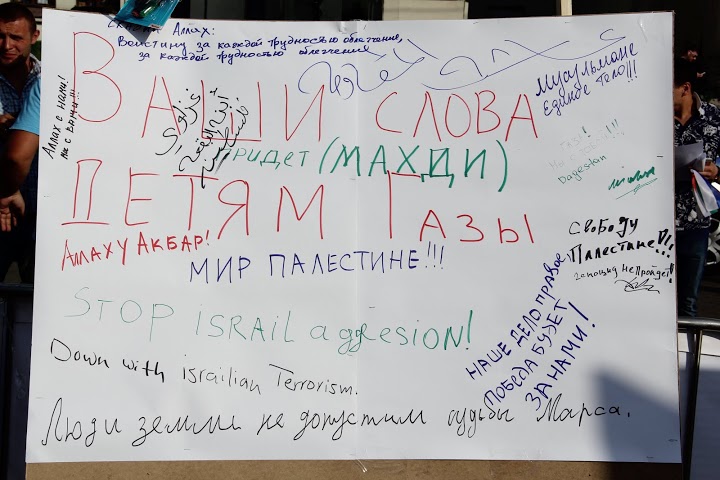 Аллах:
Воистину за каждой трудностью облегчение,
за каждой трудностью облегчение
Аллах с нами!
мы с вами!!!
Мусульмане
Единое тело!!!
ВАШИ СЛОВА
придет (МАХДИ)
Dagestan
ДЕТЯМ ГАЗЫ
Аллаху Акбар!
Свободу
Палестине!!!
запошд не пройдет!
МИР ПАЛЕСТИНЕ!!!
STOP iSRAiL aggresion!
НАШЕ ДЕЛО ПРАВОЕ,
ПОБЕДА БУДЕТ
ЗА НАМИ!
Down with israilian Terrorism.
Люди земли не допустим судьбы Марса.